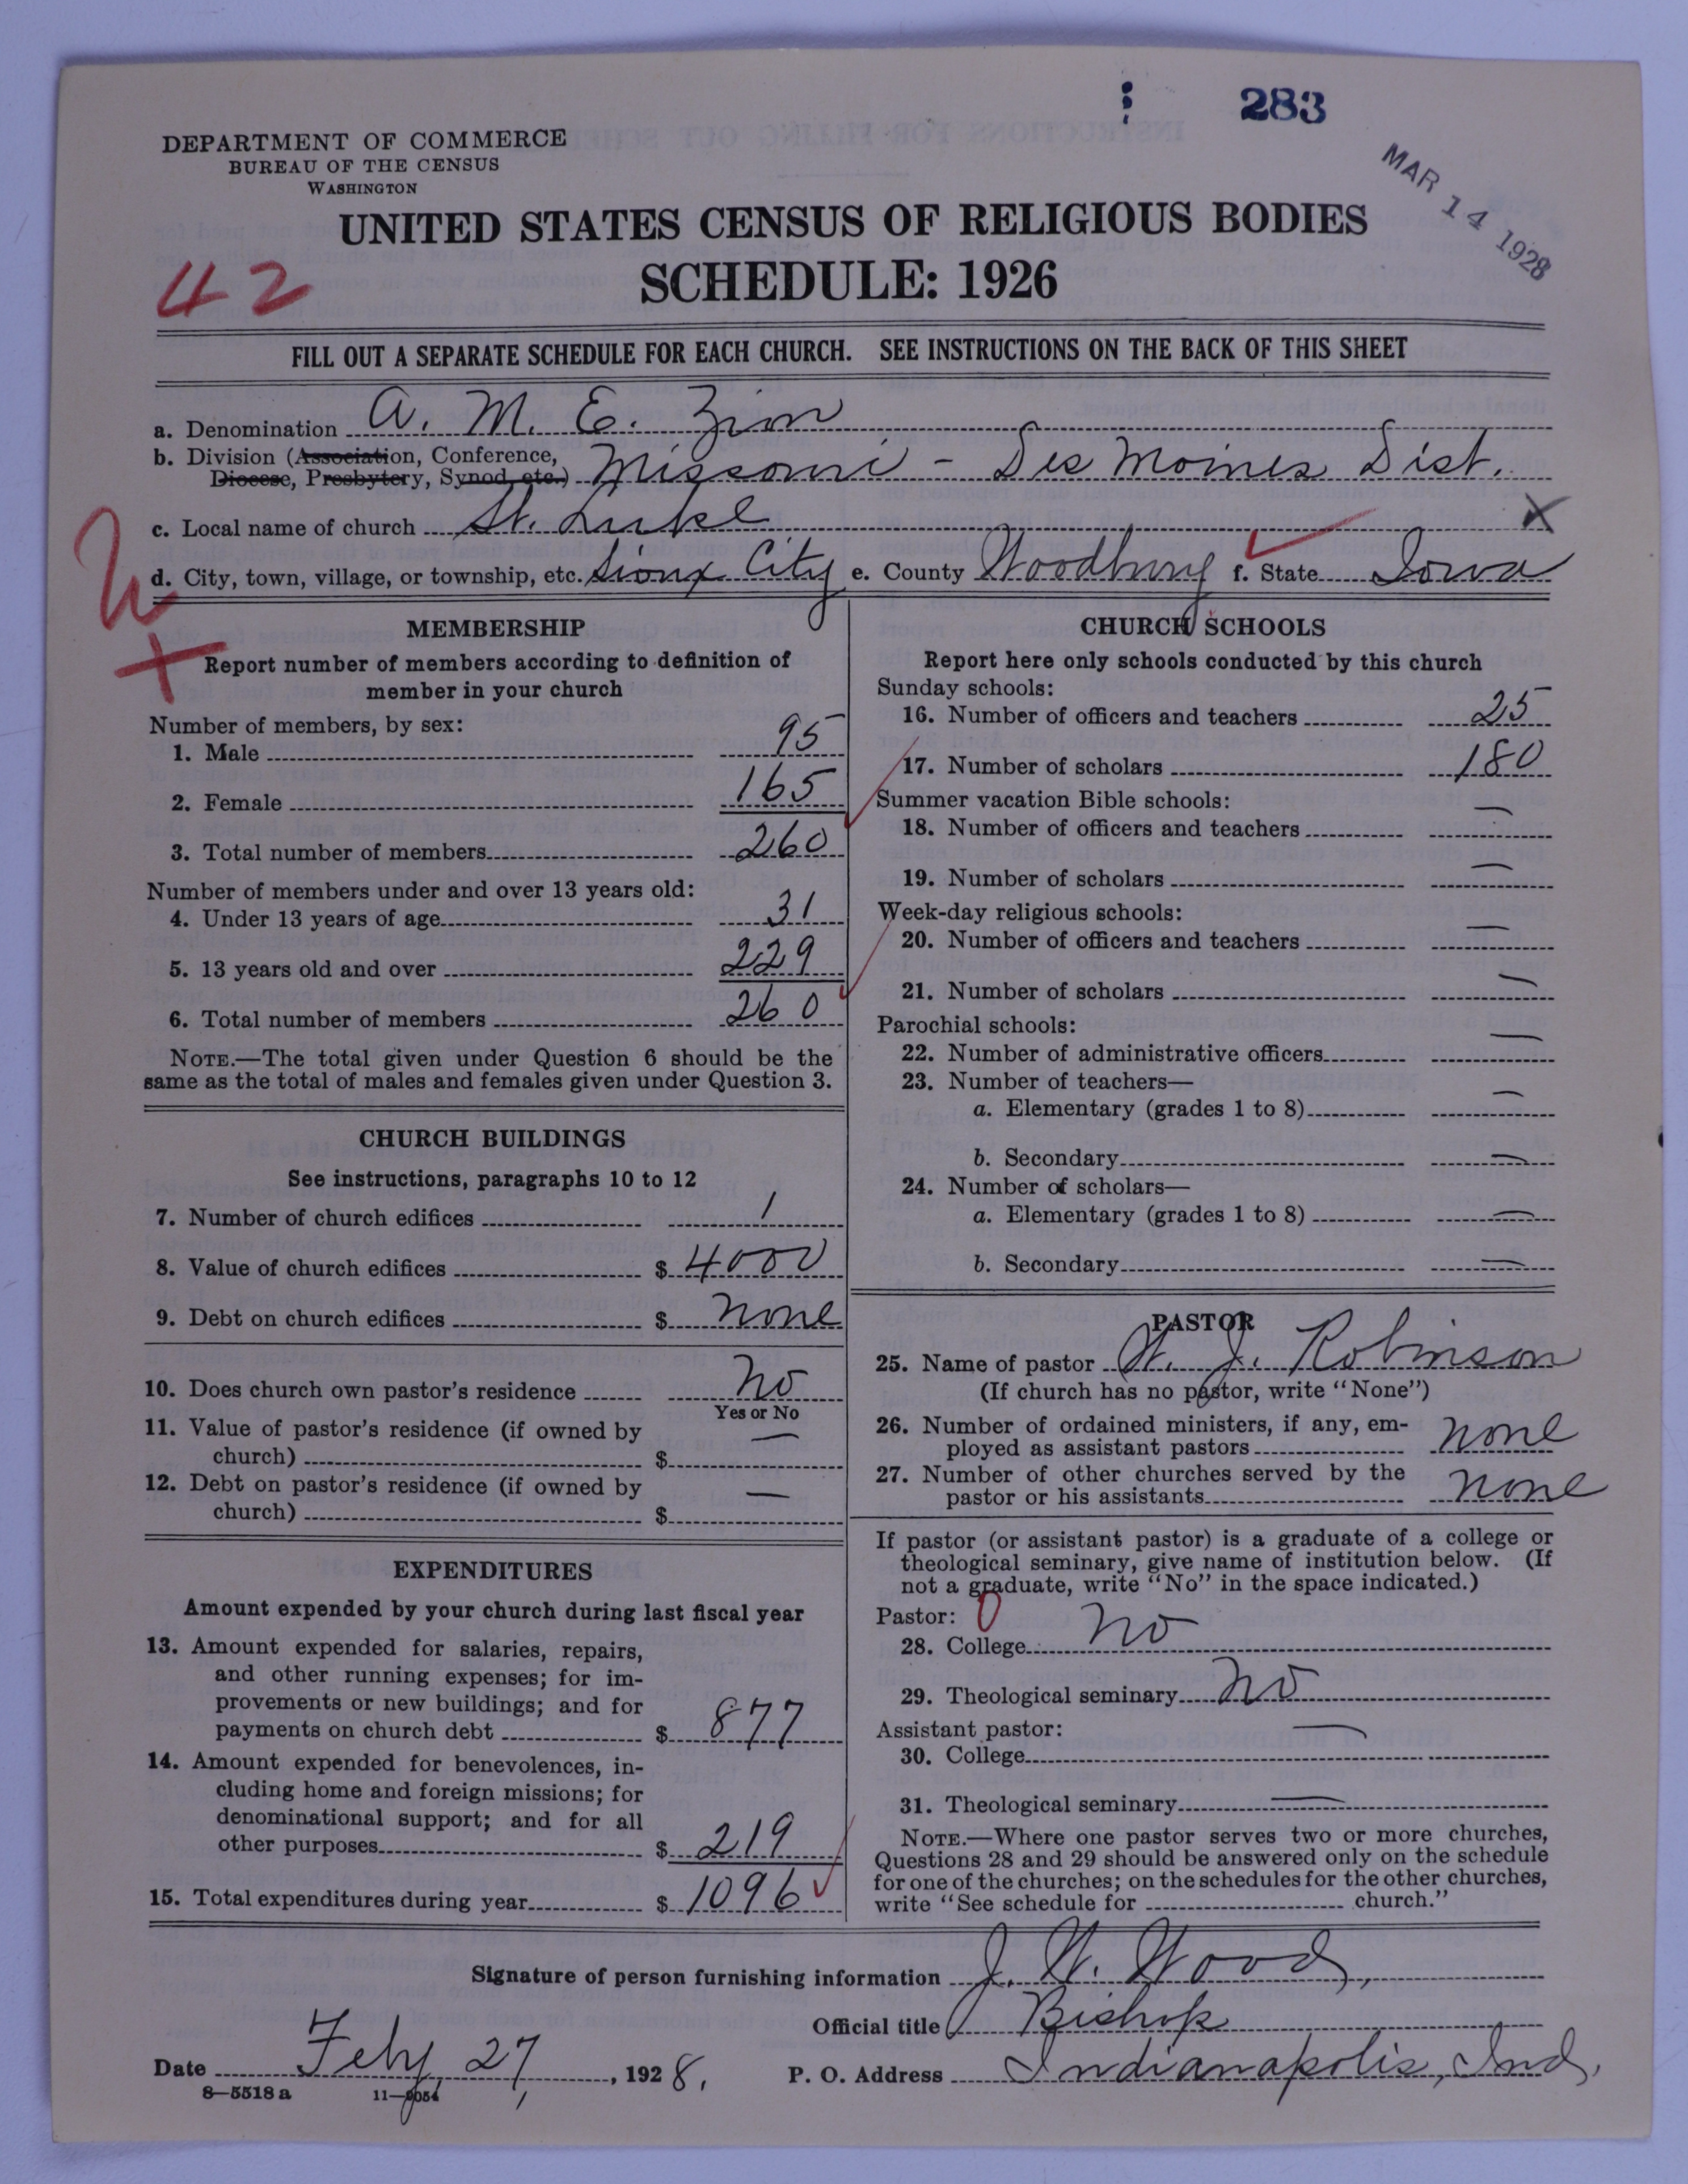 283
MAR 14 1928
DEPARTMENT OF COMMERCE
BUREAU OF THE CENSUS
WASHINGTON
UNITED STATES CENSUS OF RELIGIOUS BODIES
SCHEDULE: 1926
42
FILL OUT A SEPARATE SCHEDULE FOR EACH CHURCH. SEE INSTRUCTIONS ON THE BACK OF THIS SHEET
a. Denomination A. M. E. Zion
b. Division (Association, Conference,
Diocese, Presbytery, Synod, etc.) Missouri - Des Moines Dist.
c. Local name of church St. Luke X
d. City, town, village, or township, etc. Sioux City e. County Woodbury f. State Iowa
MEMBERSHIP
Report number of members according to definition of
member in your church
Number of members, by sex:
1. Male 95
2. Female 165
3. Total number of members 260
Number of members under and over 13 years old:
4. Under 13 years of age 31
5. 13 years old and over 229
6. Total number of members 260
NOTE.—The total given under Question 6 should be the
same as the total of males and females given under Question 3.
CHURCH BUILDINGS
See instructions, paragraphs 10 to 12
7. Number of church edifices 1
8. Value of church edifices $ 4000
9. Debt on church edifices $ none
10. Does church own pastor's residence No
Yes or No
11. Value of pastor's residence (if owned by
church) $ —
12. Debt on pastor's residence (if owned by
church) $ —
EXPENDITURES
Amount expended by your church during last fiscal year
13. Amount expended for salaries, repairs,
and other running expenses; for im-
provements or new buildings; and for
payments on church debt $ 877
14. Amount expended for benevolences, in-
cluding home and foreign missions; for
denominational support; and for all
other purposes $ 219
15. Total expenditures during year $ 1096
CHURCH SCHOOLS
Report here only schools conducted by this church
Sunday schools:
16. Number of officers and teachers 25
17. Number of scholars 180
Summer vacation Bible schools:
18. Number of officers and teachers —
19. Number of scholars —
Week-day religious schools:
20. Number of officers and teachers —
21. Number of scholars —
Parochial schools:
22. Number of administrative officers —
23. Number of teachers—
a. Elementary (grades 1 to 8) —
b. Secondary —
24. Number of scholars—
a. Elementary (grades 1 to 8) —
b. Secondary —
PASTOR
25. Name of pastor W. J. Robinson
(If church has no pastor, write "None")
26. Number of ordained ministers, if any, em-
ployed as assistant pastors none
27. Number of other churches served by the
pastor or his assistants none
If pastor (or assistant pastor) is a graduate of a college or
theological seminary, give name of institution below. (If
not a graduate, write "No" in the space indicated.)
Pastor: 0
28. College No
29. Theological seminary No
Assistant pastor:
30. College —
31. Theological seminary —
NOTE.—Where one pastor serves two or more churches,
Questions 28 and 29 should be answered only on the schedule
for one of the churches; on the schedules for the other churches,
write "See schedule for church."
Signature of person furnishing information J. W. Wood,
Official title Bishop
Date Feby 27, 1928. P. O. Address Indianapolis, Ind.
8—5518 a 11—9054